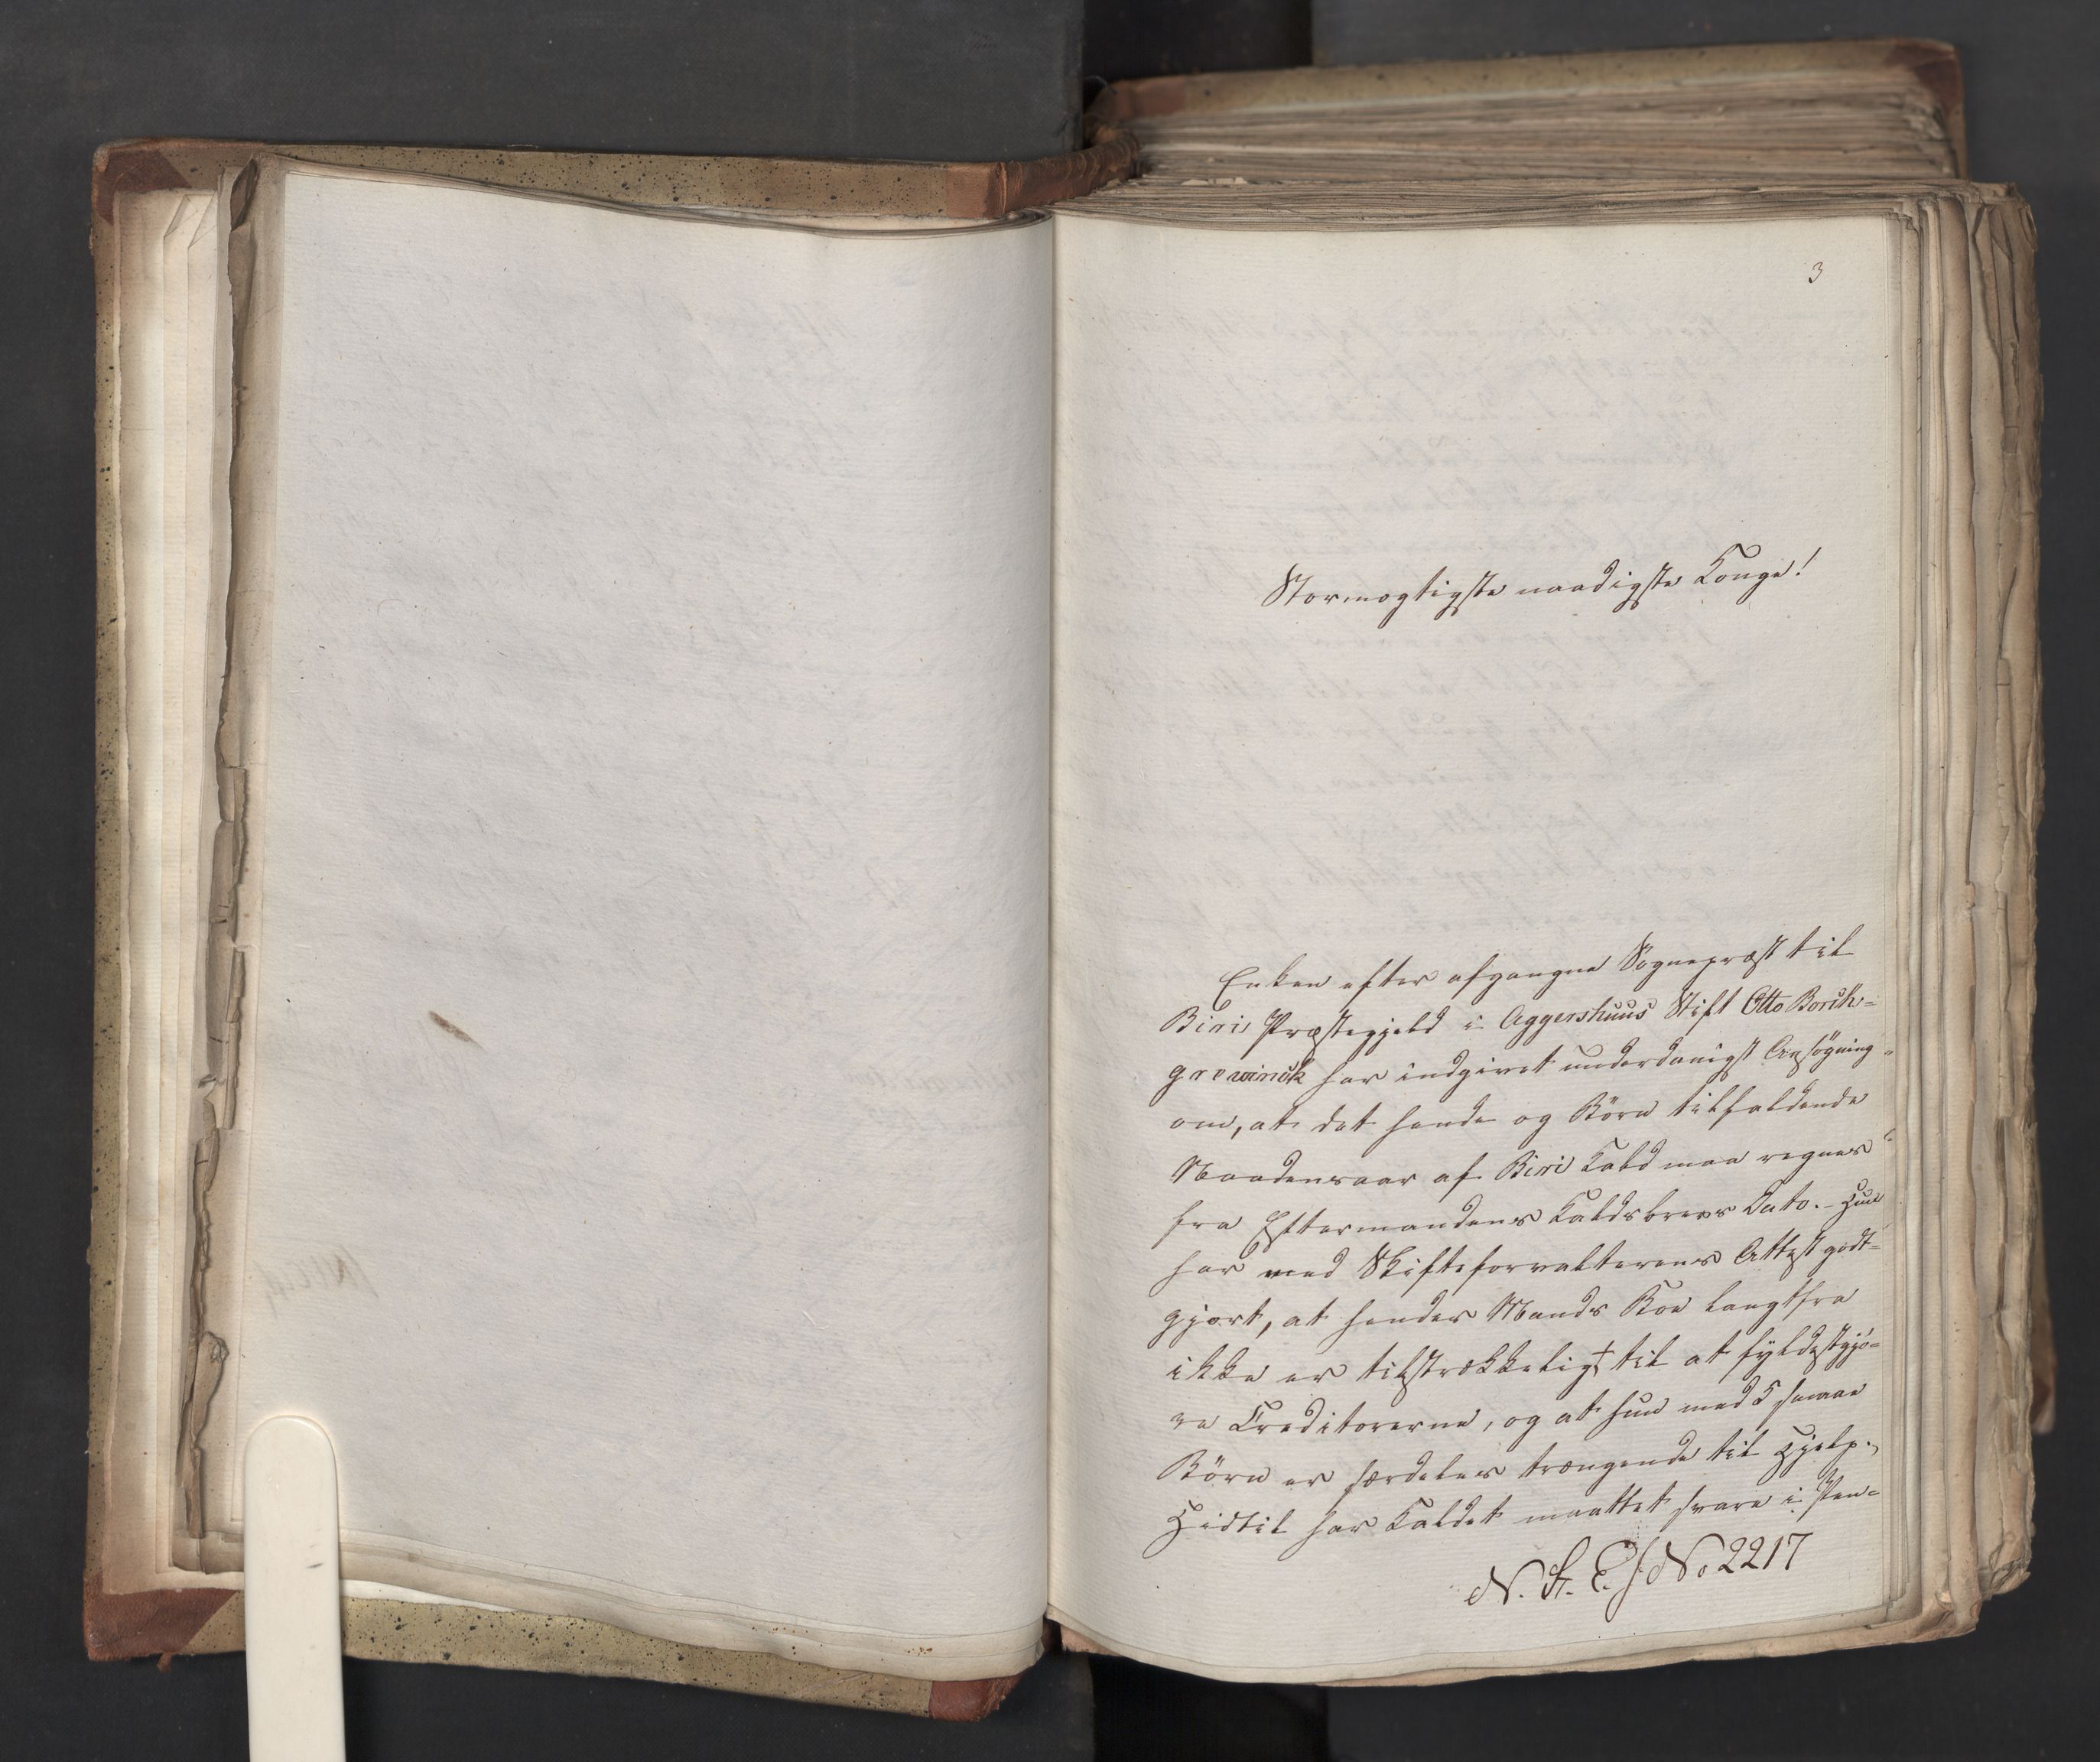 3
Stormægtigste naadigste Konge!
Enken efter afgangne Sögnepræst til
Biri Præstegjeld i Aggershuus Stift Otto Borch-
grevinck har indgivet underdanigst Ansögning
om, at det hende og Börn tilfaldende
Naadensaar af Biri Kald maa regnes
fra Eftermandens Kaldsbrevs Dato. - Hun
har med Skifteforvalterens Attest godt-
gjort, at hendes Mands Boe langtfra
ikke er tilstrækkeligt til at fyldestgjö-
re Creditorerne, og at hun med 5 smaae
Börn er særdeles trængende til Hjelp.,
Hidtil har Kaldet maattet svare i Pen-
N. St. E. J. No 2217